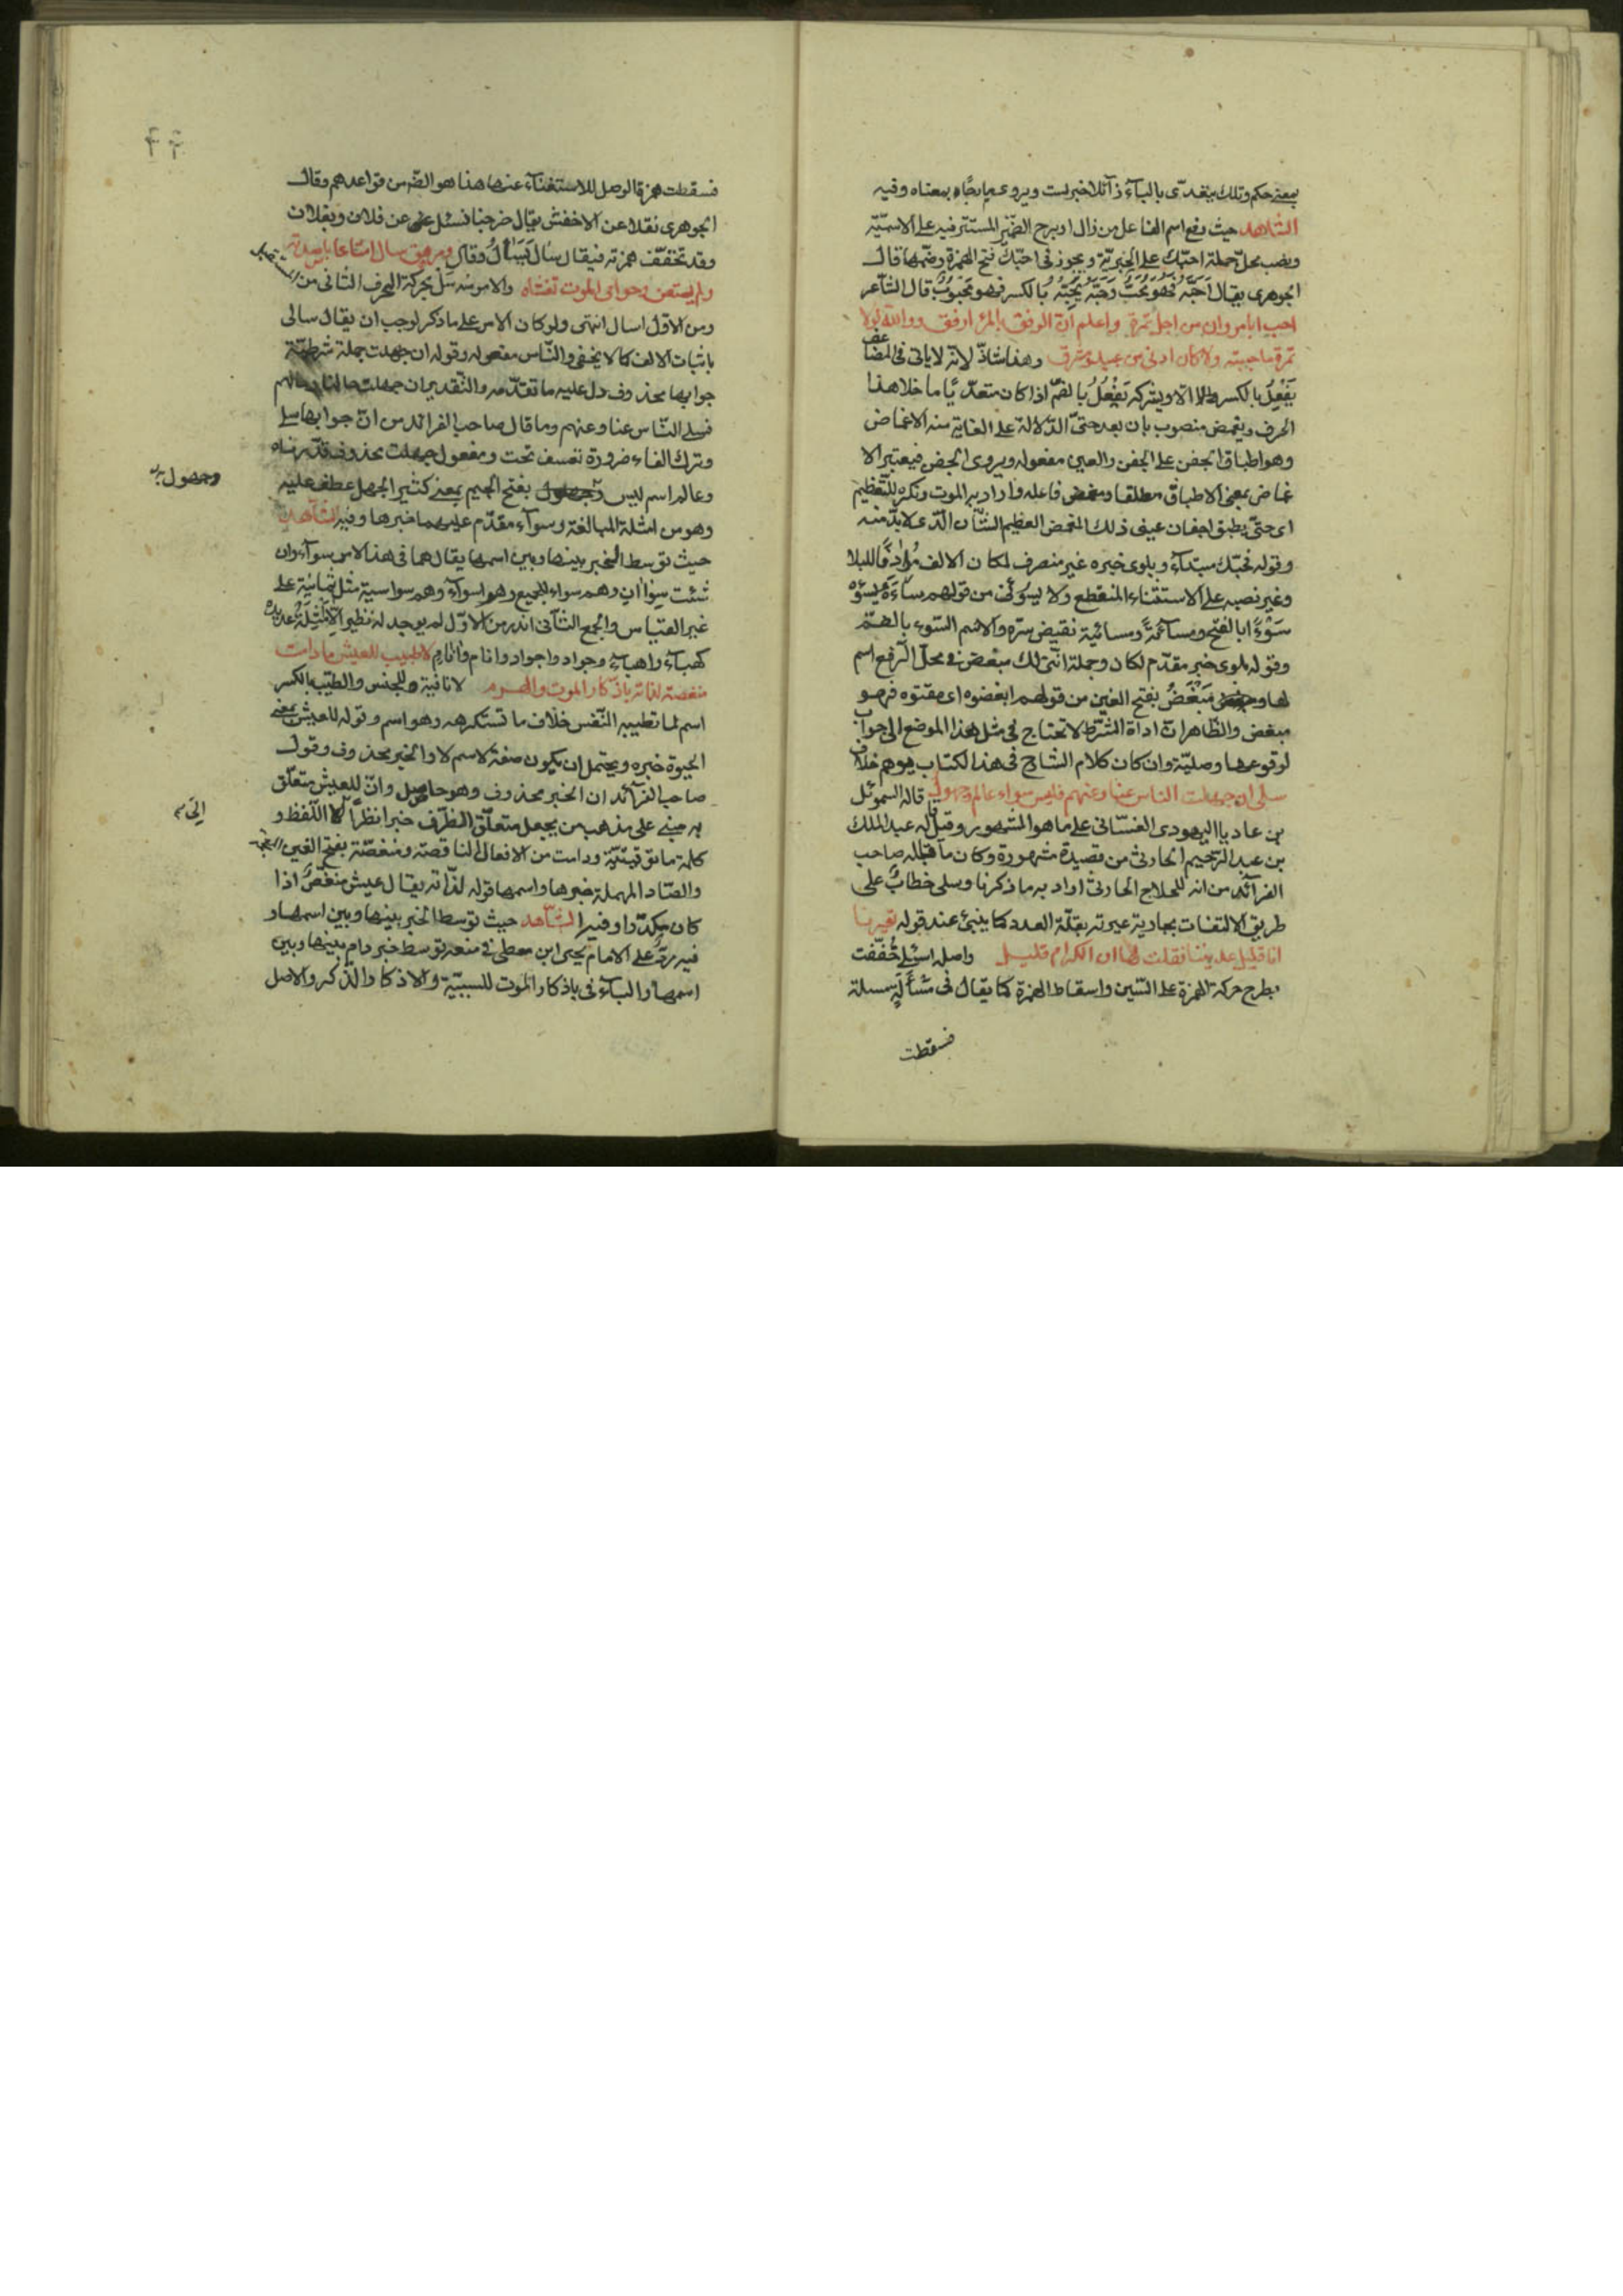 بمعنى حكم وتلك يتعدى بالباء زائلا خبر لست ويروى بارحا بمعناه وفيه
الشاهد حيث رفع اسم الفاعل من زال او برح الضمير المستتر فيه على الاسمية
ونصب محل جملة احبك على الخبرية ويجوز فى احبك فتح الهمزة وضمها قال
الجوهرى يقال احبه فهو محب وحبه يحبه بالكسر فهو محبوب قال الشاعر
احب ابا مروان من اجل تمرة واعلم ان الرفق بالمرء ارفق ووالله لولا
تمرة ما حببته ولا كان ادنى من عبيد ومشرق وهذا شاذ لانه لا ياتى فى المضاعف
يفعل بالكسر الا ويشركه يفعل بالضم اذا كان متعديا ما خلا هذا
الحرف ويغمض منصوب بان بعد حتى الدالة على الغاية منه الاغماض
وهو اطباق الجفن على الجفن والعين مفعوله ويروى الجفن فيعتبر الا
غماض بمعنى الاطباق مطلقا ومغمض فاعله واراد به الموت ونكره للتعظيم
اى حتى يطبق اجفان عينى ذلك المغمض العظيم الشأن الذى لا بد منه
وقوله مبتداء وبلوى خبره غير منصرف لمكان الالف مرادفا للبلا
وغير نصبه على الاستثناء المنقطع ولا يسوئنى من قولهم ساءه يسوءه
سوءا بالفتح ومساءة ومسائية نقيض سره والاسم السوء بالضم
وقوله بلوى خبر مقدم لكان وجملة اننى لك مبغض فى محل الرفع اسم
لها ومبغض بفتح الغين من قولهم ابغضوه اى مقتوه فهو
مبغض والظاهر ان اداة الشرط لا تحتاج فى مثل هذا الموضع الى جواب
لوقوعها وصلية وان كان كلام الشارح فى هذا الكتاب يوهم خلاف
سلى ان جهلت الناس عنا وعنهم فليس سواء عالم وجهول قاله السموئل
بن عاديا اليهودى الغسانى على ما هو المشهور وقيل قاله عبد الملك
بن عبد الرحيم الحارثى من قصيدة مشهورة وكان ما قاله صاحب
الفرائد من انه للحلاج الحارثى اراد به ما ذكرنا وسلى خطاب على
طريق الالتفات بجارية عيرته بقلة العدد كما ينبئ عند قوله تعيرنا
انا قليل عديدنا فقلت لها ان الكرام قليل واصله اسئلى خففت
بطرح حركة الهمزة على السين واسقاط الهمزة كما يقال فى مسألة مسلة
فسقطت
فسقطت همزة الوصل للاستغناء عنها هذا هو من قواعدهم وقال
الجوهرى نقلا عن الاخفش يقال خرجنا نسئل عن فلان وبفلان
وقد تخفف همزته فيقال سال يسال وقال ومرهق سال امتاعا باصدته
لم يستعن وحوامى الموت تغشاه والامر منه سل بحركة الحرف الثانى من المستقبل
ومن الاول اسال انتهى ولو كان الامر على ما ذكر لوجب ان يقال سالى
باثبات الالف كما لا يخفى والناس مفعوله وقوله ان جهلت جملة شرطية
جوابها محذوف دل عليه ما تقدمه والتقدير ان جهلت حالنا وحالهم
فسلى الناس عنا وعنهم وما قال صاحب الفرائد من ان جوابها سلى
وترك الفاء ضرورة تعسف بحت ومفعول جهلت محذوف قدرناه
وعالم اسم ليس وجهول بفتح الجيم بمعنى كثير الجهل عطف عليه
وجهول
وهو من امثلة المبالغة وسواء مقدم عليهما خبرها وفيه الشاهد
حيث توسط الخبر بينها وبين اسمها يقال هما فى هذا الامر سواء وان
شئت سواءان وهم سواء للجميع وهم اسواء وهم سواسية مثل ثمانية على
غير القياس والجمع الثانى اندر من الاول لم يوجد له نظير الا امثلة
كهباء واهباء وجواد واجواد وانام لا طيب للعيش ما دامت
منغصة لذاته باذكار الموت والهرم لا نافية للجنس والطيب بالكسر
اسم لما تطيبه النفس خلاف ما تستكرهه وهو اسم وقوله للعيش بمعنى
الحيوة خبره ويحتمل ان يكون صفة لاسم لا والخبر محذوف وقول
صاحب الفرائد ان الخبر محذوف وهو حاصل وان للعيش متعلق
به مبنى على مذهب من يجعل متعلق الظرف خبرا نظرا الى اللفظ و
الى
كلمة ما توقيتية ودامت من الافعال الناقصة ومنغصة بفتح الغين المعجمة
والصاد المهملة خبرها واسمها قوله لذاته يقال عيش منغص اذا
كان مكدرا وفيه الشاهد حيث توسط الخبر بينها وبين اسمها و
فيه رد على الامام يحيى ابن معطى فى منعه توسط خبر دام بينها وبين
اسمها والباء فى باذكار الموت للسببية والاذكار الذكر والاصل